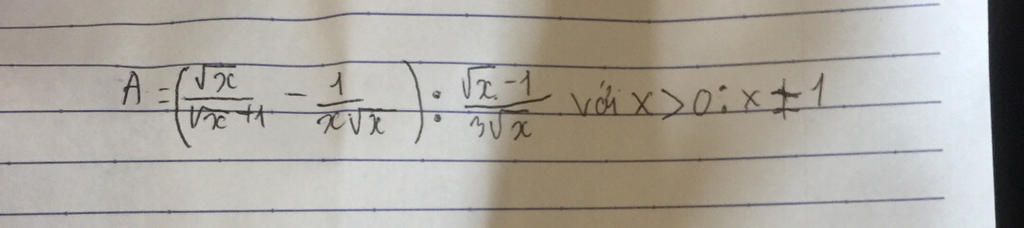 A = (√x/(√x+1) - 1/(x√x)) : (√x-1)/(3√x) với x > 0 : x ≠ 1